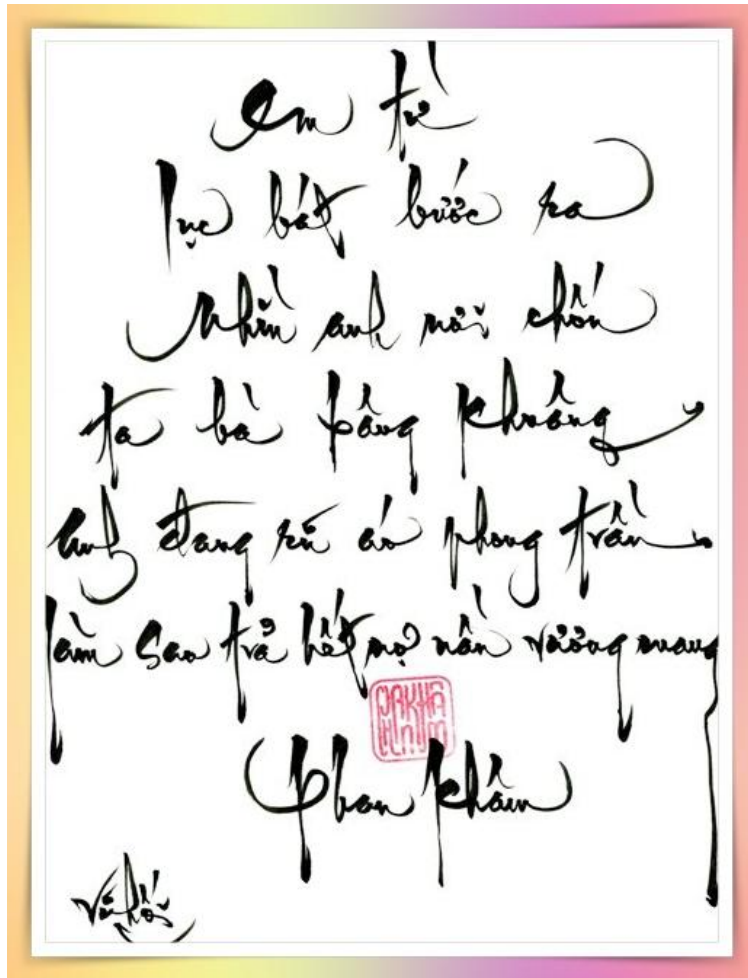 em từ
lục bát bước ra
Nhìn anh nơi chốn
ta bà bâng khuâng
anh đang rũ áo phong trần
làm sao trả hết nợ nần vướng mang
Phan Khâm